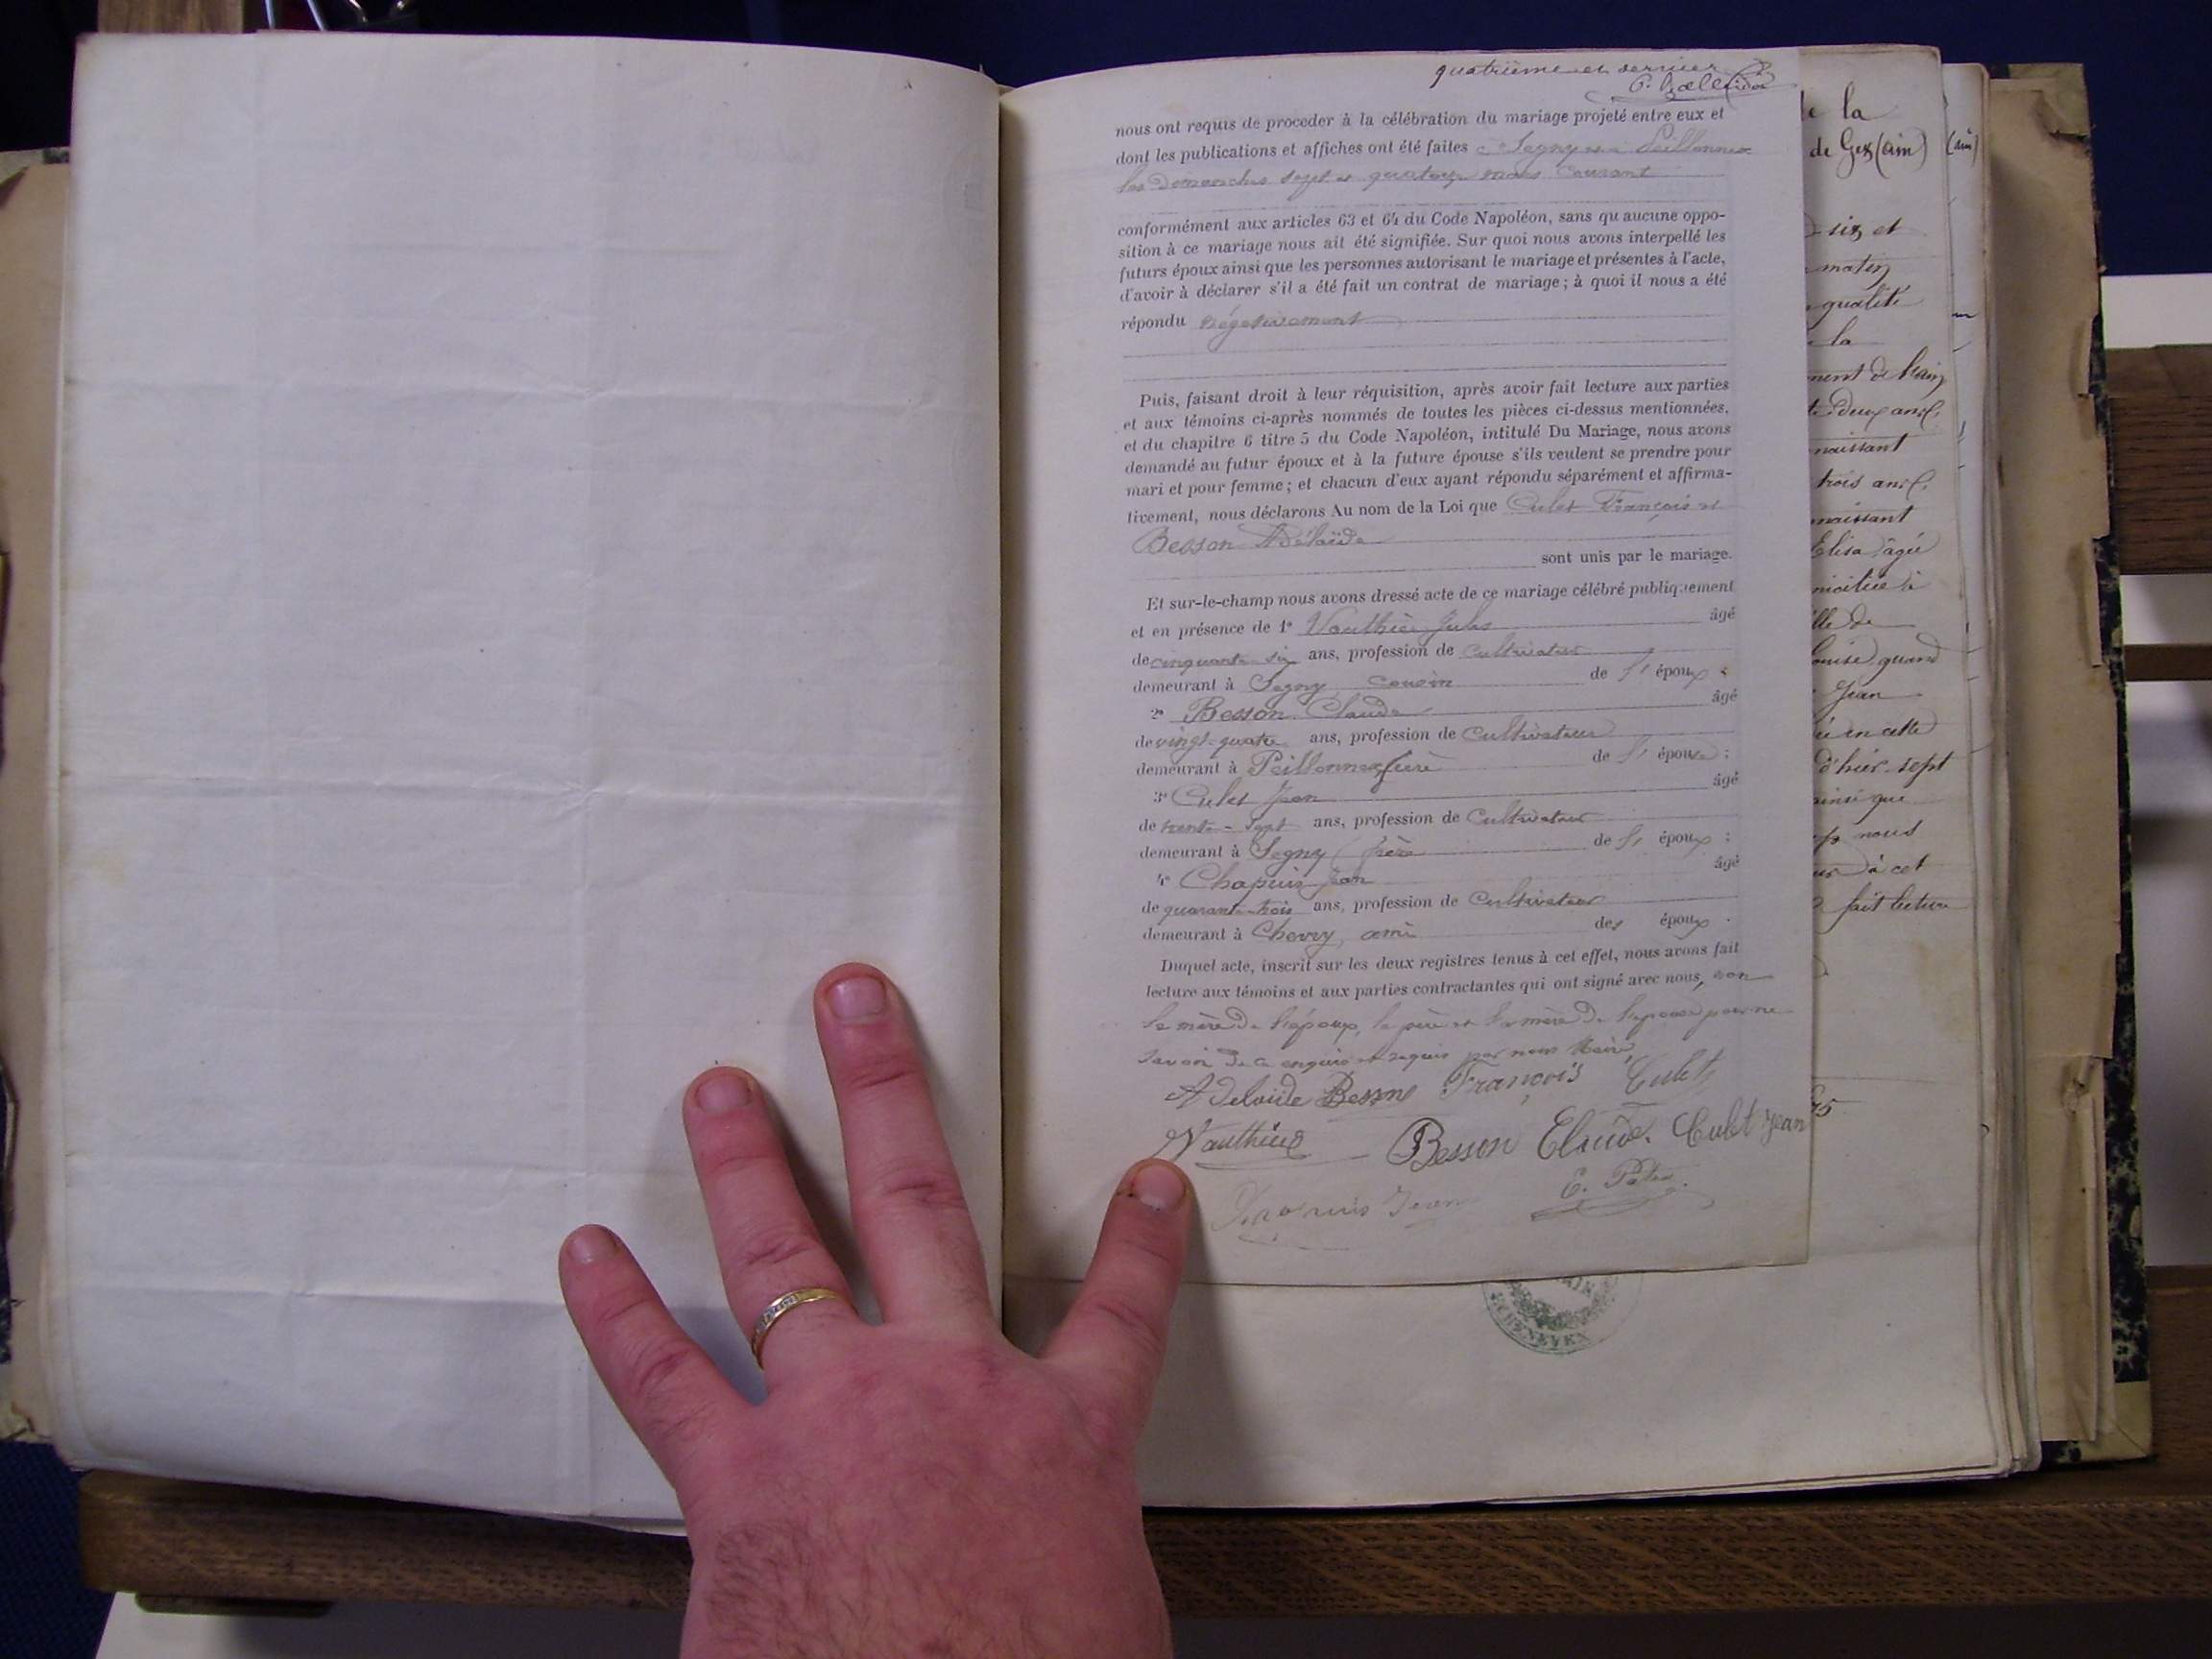 quatrième et dernier
nous ont requis de proceder à la célébration du mariage projeté entre eux et
dont les publications et affiches ont été faites à Segny et à Peillonnex
les Dimanches sept et quatorze mars courant
conformément aux articles 63 et 64 du Code Napoléon, sans qu'aucune oppo-
sition à ce mariage nous ait été signifiée. Sur quoi nous avons interpellé les
futurs époux ainsi que les personnes autorisant le mariage et présentes à l'acte,
d'avoir à déclarer s'il a été fait un contrat de mariage ; à quoi il nous a été
répondu négativement
Puis, faisant droit à leur réquisition, après avoir fait lecture aux parties
et aux témoins ci-après nommés de toutes les pièces ci-dessus mentionnées,
et du chapitre 6 titre 5 du Code Napoléon, intitulé Du Mariage, nous avons
demandé au futur époux et à la future épouse s'ils veulent se prendre pour
mari et pour femme ; et chacun d'eux ayant répondu séparément et affirma-
tivement, nous déclarons Au nom de la Loi que Culet François et
Besson Adélaïde
sont unis par le mariage.
Et sur-le-champ nous avons dressé acte de ce mariage célébré publiquement
et en présence de 1° Vauthier Jules âgé
de cinquante six ans, profession de Cultivateur
demeurant à Segny cousin de l' époux ;
2° Besson Claude âgé
de vingt-quatre ans, profession de Cultivateur
demeurant à Peillonnex frère de l' épouse ;
3° Culet Jean âgé
de trente-sept ans, profession de Cultivateur
demeurant à Segny frère de l' époux ;
4° Chapuis Jean âgé
de quarante-trois ans, profession de Cultivateur
demeurant à Chevry, ami des époux .
Duquel acte, inscrit sur les deux registres tenus à cet effet, nous avons fait
lecture aux témoins et aux parties contractantes qui ont signé avec nous, non
la mère de l'époux, le père et la mère de l'épouse pour ne
savoir de ce enquis et requis par nous Maire,
Adelaide Besson François Culet
Vauthier Besson Claude. Culet Jean
Chapuis Jean
de la
de Gex (ain)
(ain)
six et
matin
qualité
la
deux ans
naissant
trois ans
naissant
Elisa âgée
lle de
Louise, quand
Jean
d'hier sept
ainsi que
nous
à cet
fait lecture